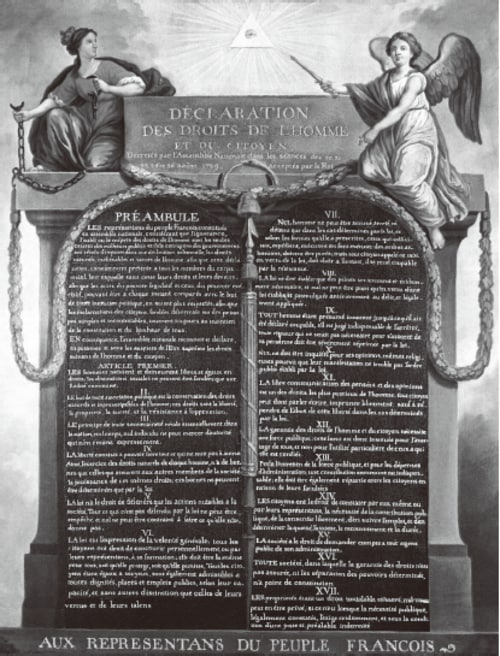 DÉCLARATION
DES DROITS DE L'HOMME
ET DU CITOYEN
Décrétés par l'Assemblée Nationale dans les séances des 20, 21
acceptés par le Roi
PRÉAMBULE
LES représentans du peuple François constitués
en assemblée nationale, considérant que l'ignorance,
l'oubli ou le mépris des droits de l'homme sont les seules
causes des malheurs publics et de la corruption des gouvernemens
ont résolu d'exposer dans une déclaration solemnelle, les droits
naturels, inaliénables et sacrés de l'homme; afin que cette décla-
ration, constamment présente à tous les membres du corps
social, leur rappelle sans cesse leurs droits et leurs devoirs;
afin que les actes du pouvoir législatif et ceux du pouvoir exé-
cutif, pouvant être à chaque instant comparés avec le but
de toute institution politique, en soient plus respectés; afin que
les réclamations des citoyens, fondées désormais sur des princi-
pes simples et incontestables, tournent toujours au maintien
de la constitution et du bonheur de tous.
EN conséquence, l'assemblée nationale reconnoit et déclare,
en présence et sous les auspices de l'Être suprême les droits
suivans de l'homme et du citoyen.
ARTICLE PREMIER.
LES hommes naissent et demeurent libres et égaux en
droits, les distinctions sociales ne peuvent être fondées que sur
l'utilité commune.
II.
LE but de toute association politique est la conservation des droits
naturels et imprescriptibles de l'homme; ces droits sont la liberté,
la propriété, la sureté, et la résistance à l'oppression.
III.
LE principe de toute souveraineté réside essentiellement dans
la nation, nul corps, nul individu ne peut exercer d'autorité
qui n'en émane expressement.
IV.
LA liberté consiste à pouvoir faire tout ce qui ne nuit pas à autrui
Ainsi, l'exercice des droits naturels de chaque homme, n'a de bor-
nes que celles qui assurent aux autres membres de la société
la jouissance de ces mêmes droits; ces bornes ne peuvent
être déterminées que par la loi.
V.
LA loi n'a le droit de défendre que les actions nuisibles à la
société. Tout ce qui n'est pas défendu par la loi ne peut être
empêché, et nul ne peut être contraint à faire ce qu'elle n'or-
donne pas.
VI.
LA loi est l'expression de la volonté générale; tous les
citoyens ont droit de concourir personnellement, ou par
leurs représentans, à sa formation; elle doit être la même
pour tous, soit qu'elle protege, soit qu'elle punisse. Tous les cito-
yens étant égaux à ses yeux, sont également admissibles à
toutes dignités, places et emplois publics, selon leur ca-
pacité, et sans autres distinctions que celles de leurs
vertus et de leurs talens.
VII.
NUL homme ne peut être accusé, arrêté ni
détenu que dans les cas déterminés par la loi, et
selon les formes qu'elle a prescrites, ceux qui sollici-
tent, expédient, exécutent ou font exécuter des ordres ar-
bitraires, doivent être punis; mais tout citoyen appelé ou saisi
en vertu de la loi, doit obéir à l'instant, il se rend coupable
par la résistance.
VIII.
LA loi ne doit établir que des peines strictement et évidem-
ment nécessaires, et nul ne peut être puni qu'en vertu d'une
loi établie et promulguée antérieurement au délit, et léga-
lement appliquée.
IX.
TOUT homme étant présumé innocent jusqu'à ce qu'il ait
été déclaré coupable, s'il est jugé indispensable de l'arrêter,
toute rigueur qui ne seroit pas nécessaire pour s'assurer de
sa personne doit être sévèrement réprimée par la loi.
X.
NUL ne doit être inquiété pour ses opinions, mêmes religi-
euses pourvu que leur manifestation ne trouble pas l'ordre
public établi par la loi.
XI.
LA libre communication des pensées et des opinions
est un des droits les plus précieux de l'homme; tout citoyen
peut donc parler, écrire, imprimer librement: sauf à ré-
pondre de l'abus de cette liberté dans les cas déterminés
par la loi.
XII.
LA garantie des droits de l'homme et du citoyen nécessite
une force publique; cette force est donc instituée pour l'avan-
tage de tous, et non pour l'utilité particulière de ceux à qui
elle est confiée.
XIII.
Pour l'entretien de la force publique, et pour les dépenses
d'administration, une contribution commune est indispen-
sable; elle doit être également répartie entre les citoyens en
raison de leurs facultés.
XIV.
LES citoyens ont le droit de constater par eux même ou
par leurs représentans, la nécessité de la contribution pub-
lique, de la consentir librement, d'en suivre l'emploi, et d'en
déterminer la quotité, l'assiette, le recouvrement et la durée.
XV.
LA société a le droit de demander compte à tout agent
public de son administration.
XVI.
TOUTE société, dans laquelle la garantie des droits n'est
pas assurée, ni la séparation des pouvoirs déterminée,
n'a point de constitution.
XVII.
LES propriétés étant un droit inviolable et sacré, nul ne
peut en être privé, si ce n'est lorsque la nécessité publique,
légalement constatée, l'exige évidemment, et sous la condi-
tion d'une juste et préalable indemnité.
AUX REPRESENTANS DU PEUPLE FRANCOIS